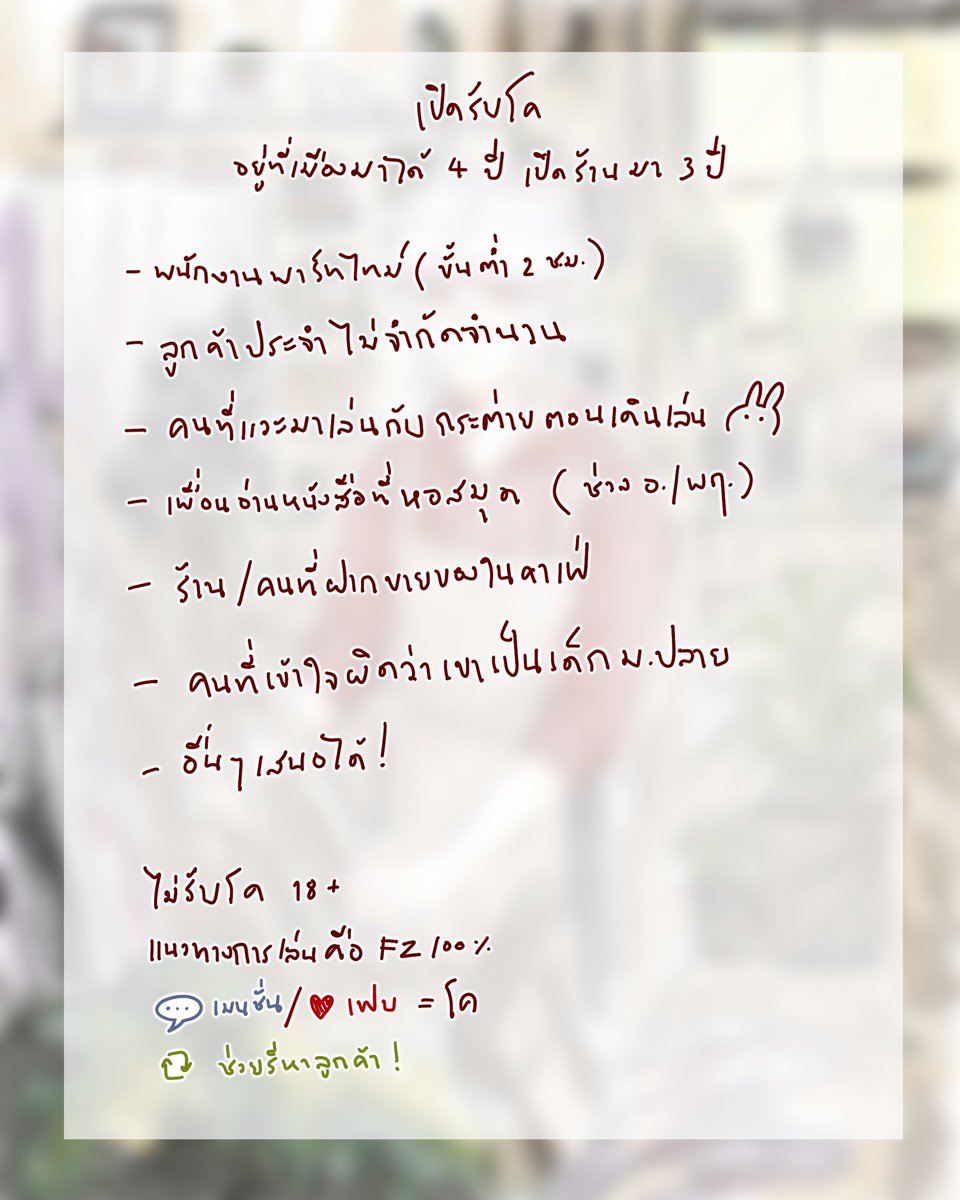 เปิดรับโค
อยู่ที่เมืองมาได้ 4 ปี เปิดร้านมา 3 ปี
- พนักงานพาร์ทไทม์ (ขั้นต่ำ 2 ชม.)
- ลูกค้าประจำไม่จำกัดจำนวน
- คนที่แวะมาเล่นกับกระต่ายตอนเดินเล่น
- เพื่อนอ่านหนังสือที่หอสมุด (ช่วง อ./พฤ.)
- ร้าน/คนที่ฝากขายของในคาเฟ่
- คนที่เข้าใจผิดว่าเขาเป็นเด็กม.ปลาย
- อื่นๆเสนอได้!
ไม่รับโค 18+
แนวทางการเล่นคือ FZ 100%
เมนชั่น/เฟบ = โค
ช่วยรีหาลูกค้า!